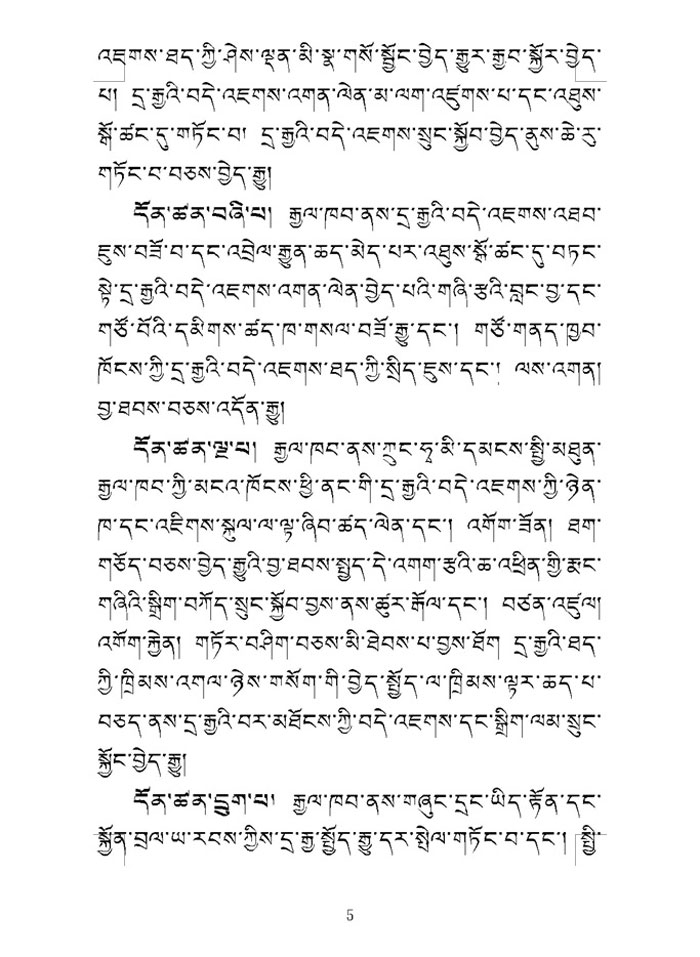 འཇགས་ཐད་ཀྱི་ཤེས་ལྡན་མི་སྣ་གསོ་སྦྱོང་བྱེད་རྒྱུར་རྒྱབ་སྐྱོར་བྱེད་
པ། དྲ་རྒྱའི་བདེ་འཇགས་འགན་ལེན་མ་ལག་འཛུགས་པ་དང་འཐུས་
སྒོ་ཚང་དུ་གཏོང་བ། དྲ་རྒྱའི་བདེ་འཇགས་སྲུང་སྐྱོབ་བྱེད་ནུས་ཆེ་རུ་
གཏོང་བ་བཅས་བྱེད་རྒྱུ།
དོན་ཚན་བཞི་པ། རྒྱལ་ཁབ་ནས་དྲ་རྒྱའི་བདེ་འཇགས་འཐབ་
ཇུས་བཟོ་བ་དང་འབྲེལ་རྒྱུན་ཆད་མེད་པར་འཐུས་སྒོ་ཚང་དུ་བཏང་
སྟེ་དྲ་རྒྱའི་བདེ་འཇགས་འགན་ལེན་བྱེད་པའི་གཞི་རྩའི་བླང་བྱ་དང་
གཙོ་བོའི་དམིགས་ཚད་ཁ་གསལ་བཟོ་རྒྱུ་དང་། གཙོ་གནད་ཁྱབ་
ཁོངས་ཀྱི་དྲ་རྒྱའི་བདེ་འཇགས་ཐད་ཀྱི་སྲིད་ཇུས་དང་། ལས་འགན།
བྱ་ཐབས་བཅས་འདོན་རྒྱུ།
དོན་ཚན་ལྔ་པ། རྒྱལ་ཁབ་ནས་ཀྲུང་ཧྭ་མི་དམངས་སྤྱི་མཐུན་
རྒྱལ་ཁབ་ཀྱི་མངའ་ཁོངས་ཕྱི་ནང་གི་དྲ་རྒྱའི་བདེ་འཇགས་ཀྱི་ཉེན་
ཁ་དང་འཇིགས་སྐུལ་ལ་ལྟ་ཞིབ་ཚད་ལེན་དང་། འགོག་ཟོན། ཐག་
གཅོད་བཅས་བྱེད་རྒྱུའི་བྱ་ཐབས་སྤྱད་དེ་འགག་རྩའི་ཆ་འཕྲིན་གྱི་རྨང་
གཞིའི་སྒྲིག་བཀོད་སྲུང་སྐྱོབ་བྱས་ནས་ཚུར་རྒོལ་དང་། བཙན་འཛུལ།
འགོག་རྐྱེན། གཏོར་བཤིག་བཅས་མི་ཐེབས་པ་བྱས་ཐོག དྲ་རྒྱའི་ཐད་
ཀྱི་ཁྲིམས་འགལ་ཉེས་གསོག་གི་བྱེད་སྤྱོད་ལ་ཁྲིམས་ལྟར་ཆད་པ་
བཅད་ནས་དྲ་རྒྱའི་བར་མཐོངས་ཀྱི་བདེ་འཇགས་དང་སྒྲིག་ལམ་སྲུང་
སྐྱོང་བྱེད་རྒྱུ།
དོན་ཚན་དྲུག་པ། རྒྱལ་ཁབ་ནས་གཞུང་དྲང་ཡིད་རྟོན་དང་
སྐྱོན་བྲལ་ཡ་རབས་ཀྱིས་དྲ་རྒྱ་སྤྱོད་རྒྱུ་དར་སྤེལ་གཏོང་བ་དང་། སྤྱི་
5